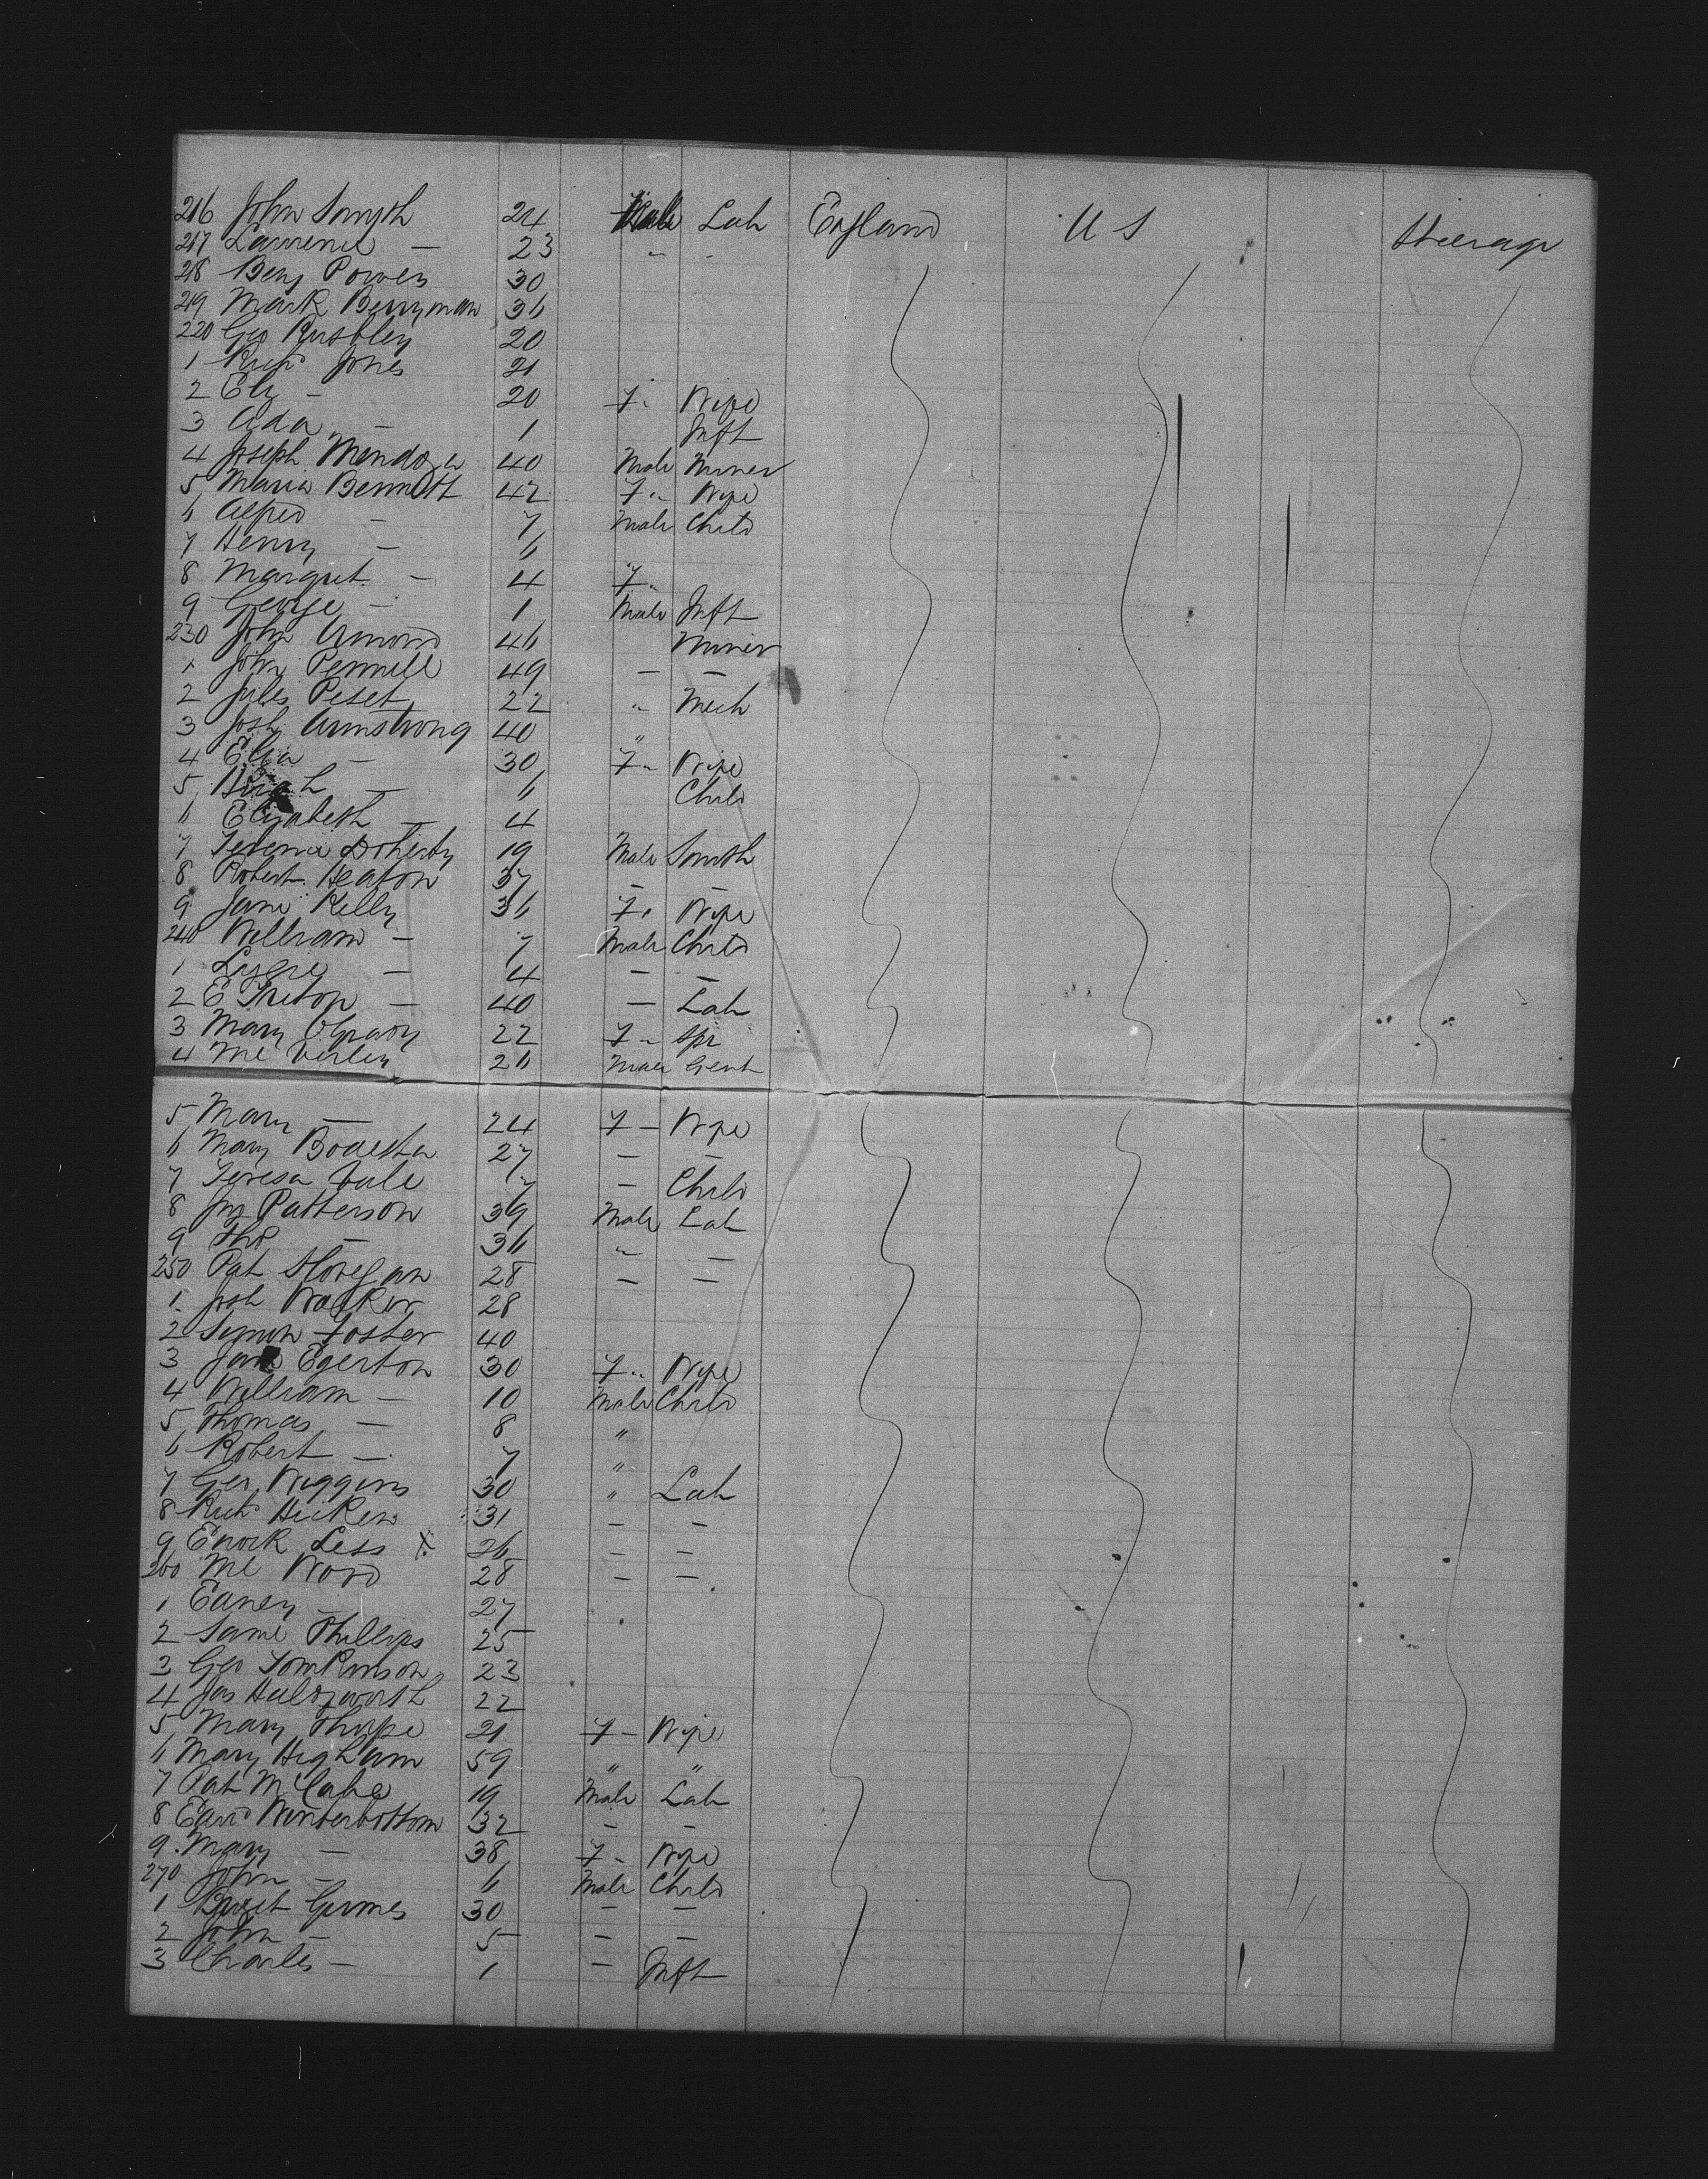 216 John Smyth 24 Male Lab England U S Steerage
217 Laurence — 23 " "
218 Benj Powers 30
219 Mark Berryman 36
220 Geo Rushbley 20
1 Rich<sup>d</sup> Jones 21
2 Eliz — 20 F " Wife
3 Ada — 1 Inft
4 Joseph Mendoza 40 Male Miner
5 Maria Bennett 42 F " Wife
6 Alfred — 7 Male Child
7 Henry — 6
8 Margret — 4 F "
9 George — 1 Male Inft
230 John Amond 46 Miner
1 John Pennell 49 — —
2 Jules Peset 22 " Mech
3 Josh Armstrong 40 "
4 Eliza — 30 F " Wife
5 — 6 Child
6 Elizabeth — 4
7 Terence Doherty 19 Male Smith
8 Robert Heaton 37 — —
9 Jane Kelly 36 F " Wife
240 William — 7 Male Child
1 — 4 — —
2 E — 40 — Lab
3 Mary OGrady 22 F " Spr
4 Ml Verley 26 Male Gent
5 Mary — 24 F — Wife
6 Mary 27 — —
7 Teresa Vale 7 — Child
8 Jno Patterson 39 Male Lab
9 Tho<sup>s</sup> — 36 " —
250 Pat 28 — —
1 Josh Walker 28
2 Symon Foster 40
3 Jane Egerton 30 F " Wife
4 William — 10 Male Child
5 Thomas — 8 "
6 Robert — 7 "
7 Geo Wiggins 30 " Lab
8 Rich<sup>d</sup> Hicken 31 — —
9 Enock Less X 26 — —
260 Ml Wood 28 — —
1 — 27
2 Saml Phillips 25
3 Geo Tomkinson 23
4 Jas Holdsworth 22
5 Mary Thorpe 21 F — Wife
6 Mary Higham 59 " "
7 Pat McCabe 19 Male Lab
8 Edw<sup>d</sup> Winterbottom 32 — —
9 Mary — 38 F " Wife
270 John — 6 Male Child
1 Grimes 30 — —
2 John — 5 — —
3 Charles — 1 — Inft